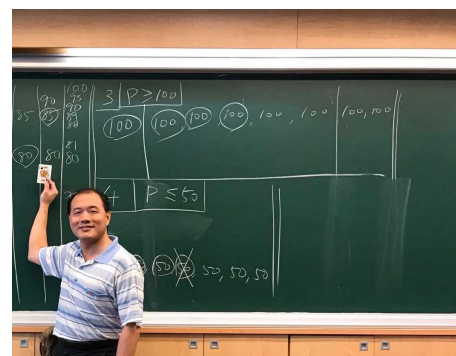 100
90 95
85 85 90
85
86
81
80 80 80
3 P ≥ 100
100 100 100, 100, 100, 100 100, 100
4 P ≤ 50
50 50 50, 50, 50